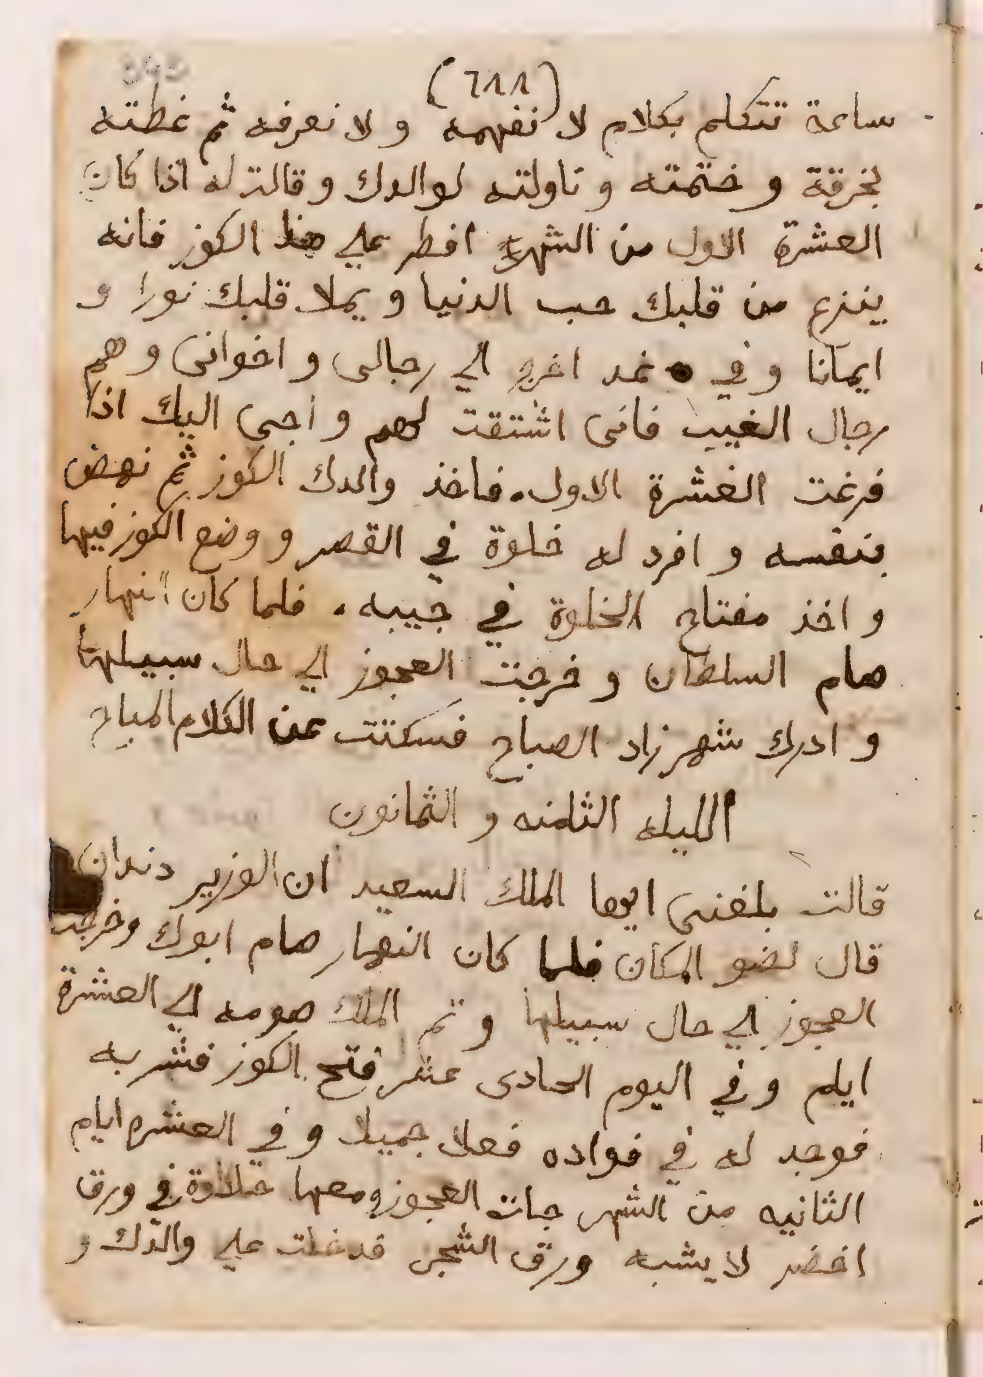 (٦٨٨)
ساعة تتكلم بكلام لا نفهمه و لا نعرفه ثم غطته
بخرقة و ختمته و ناولته لوالدك و قالت له اذا كان
العشرة الاول من الشهر افطر علي هذا الكوز فانه
ينزع من قلبك حب الدنيا و يملا قلبك نورا و
ايمانا و في غد اخرج الي رجالى و اخوانى و هم
رجال الغيب فانى اشتقت لهم و اجى اليك اذا
فرغت العشرة الاول. فاخذ والدك الكوز ثم نهض
بنفسه و افرد له خلوة في القصر و وضع الكوز فيها
و اخذ مفتاح الخلوة في جيبه. فلما كان النهار
صام السلطان و خرجت العجوز الي حال سبيلها
و ادرك شهرزاد الصباح فسكتت عن الكلام المباح
الليله الثامنه و الثمانون
قالت بلغنى ايها الملك السعيد ان الوزير دندان
قال لضو المكان فلما كان النهار صام ابوك وخرجت
العجوز الي حال سبيلها و تم الملك صومه الي العشرة
ايام و في اليوم الحادى عشر فتح الكوز فشربه
فوجد له في فواده فعلا جميلا و في العشره ايام
الثانيه من الشهر جات العجوز ومعها حلاوة في ورق
اخضر لا يشبه ورق الشجر فدخلت علي والدك و